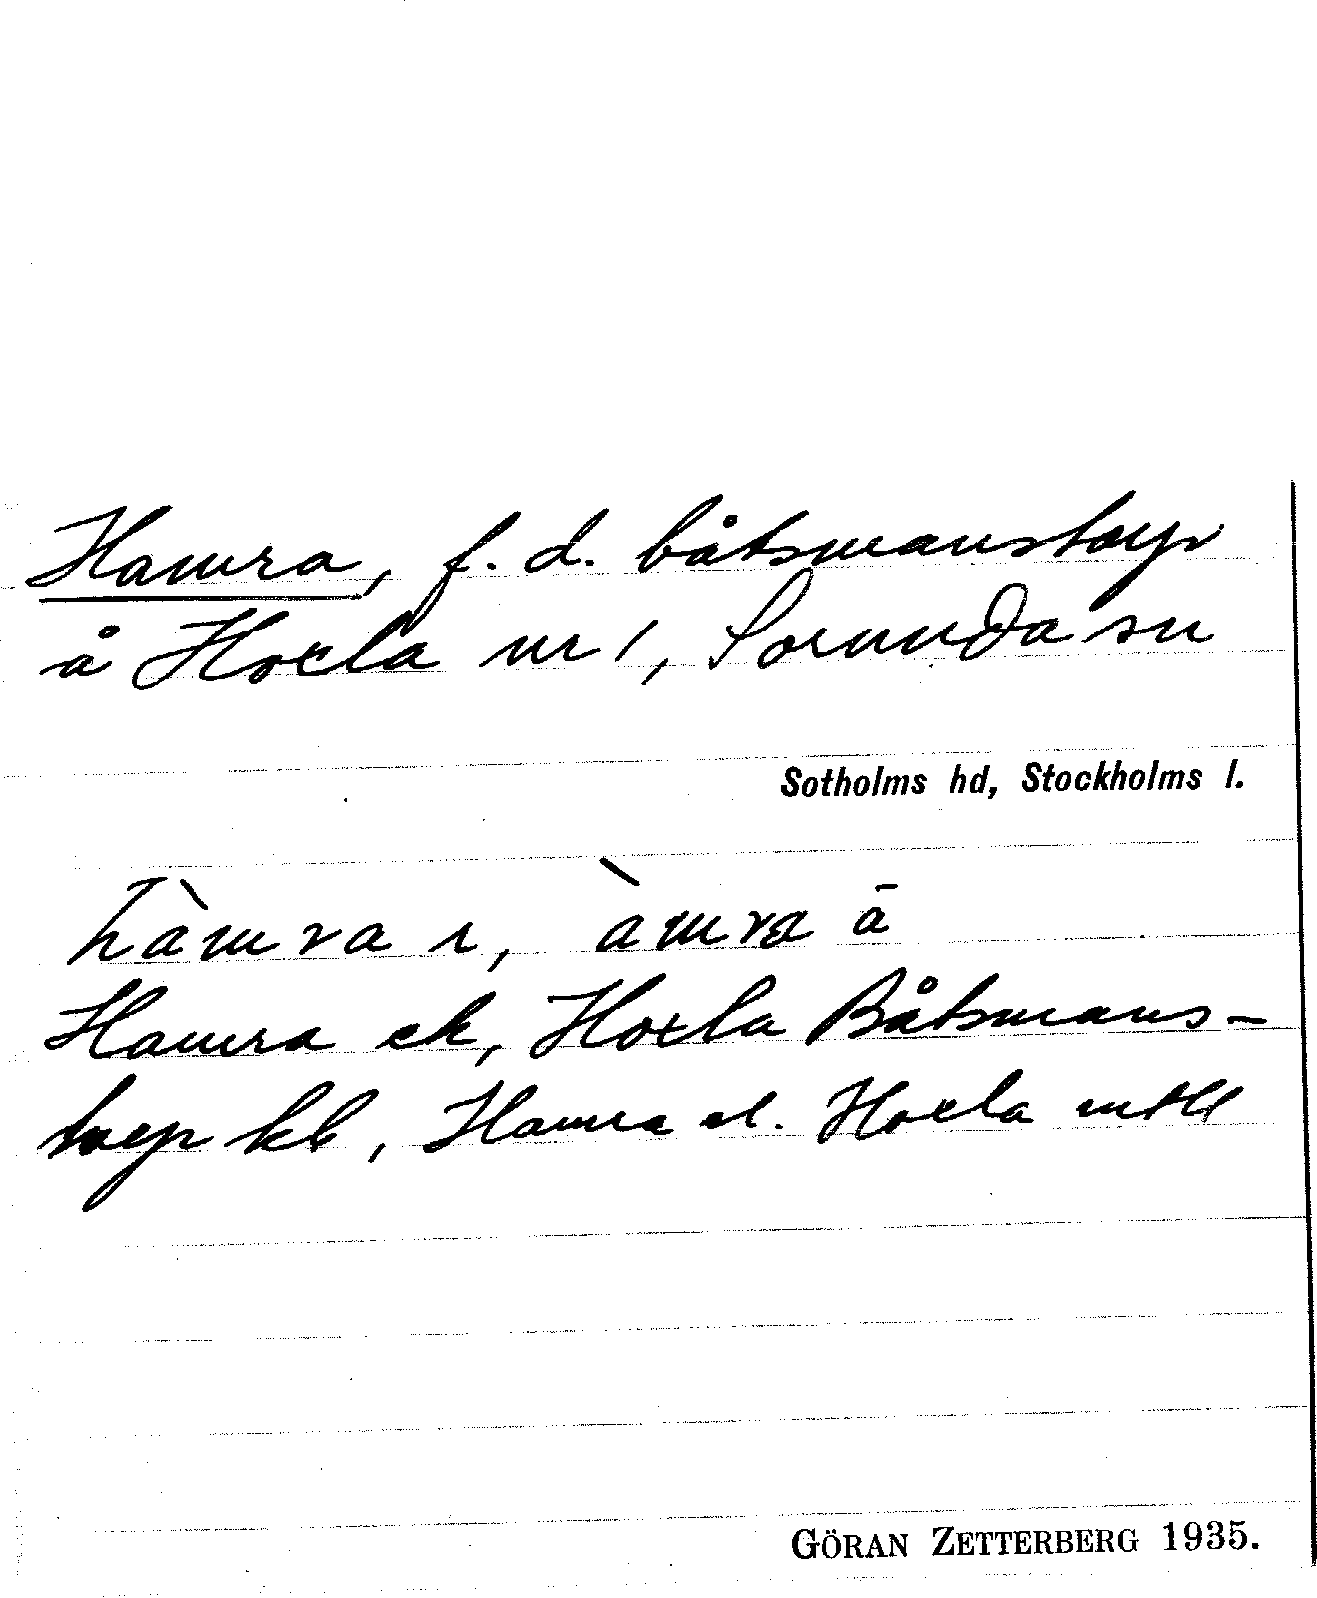 Hamra, f. d. båtsmanstorp
å Hoxla nr 1, Sorunda sn
Sotholms hd, Stockholms l.
hàmra r, àmra ā
Hamra ek, Hoxla Båtsmans-
torp kb, Hamra el. Hoxla mtll
GÖRAN ZETTERBERG 1935.